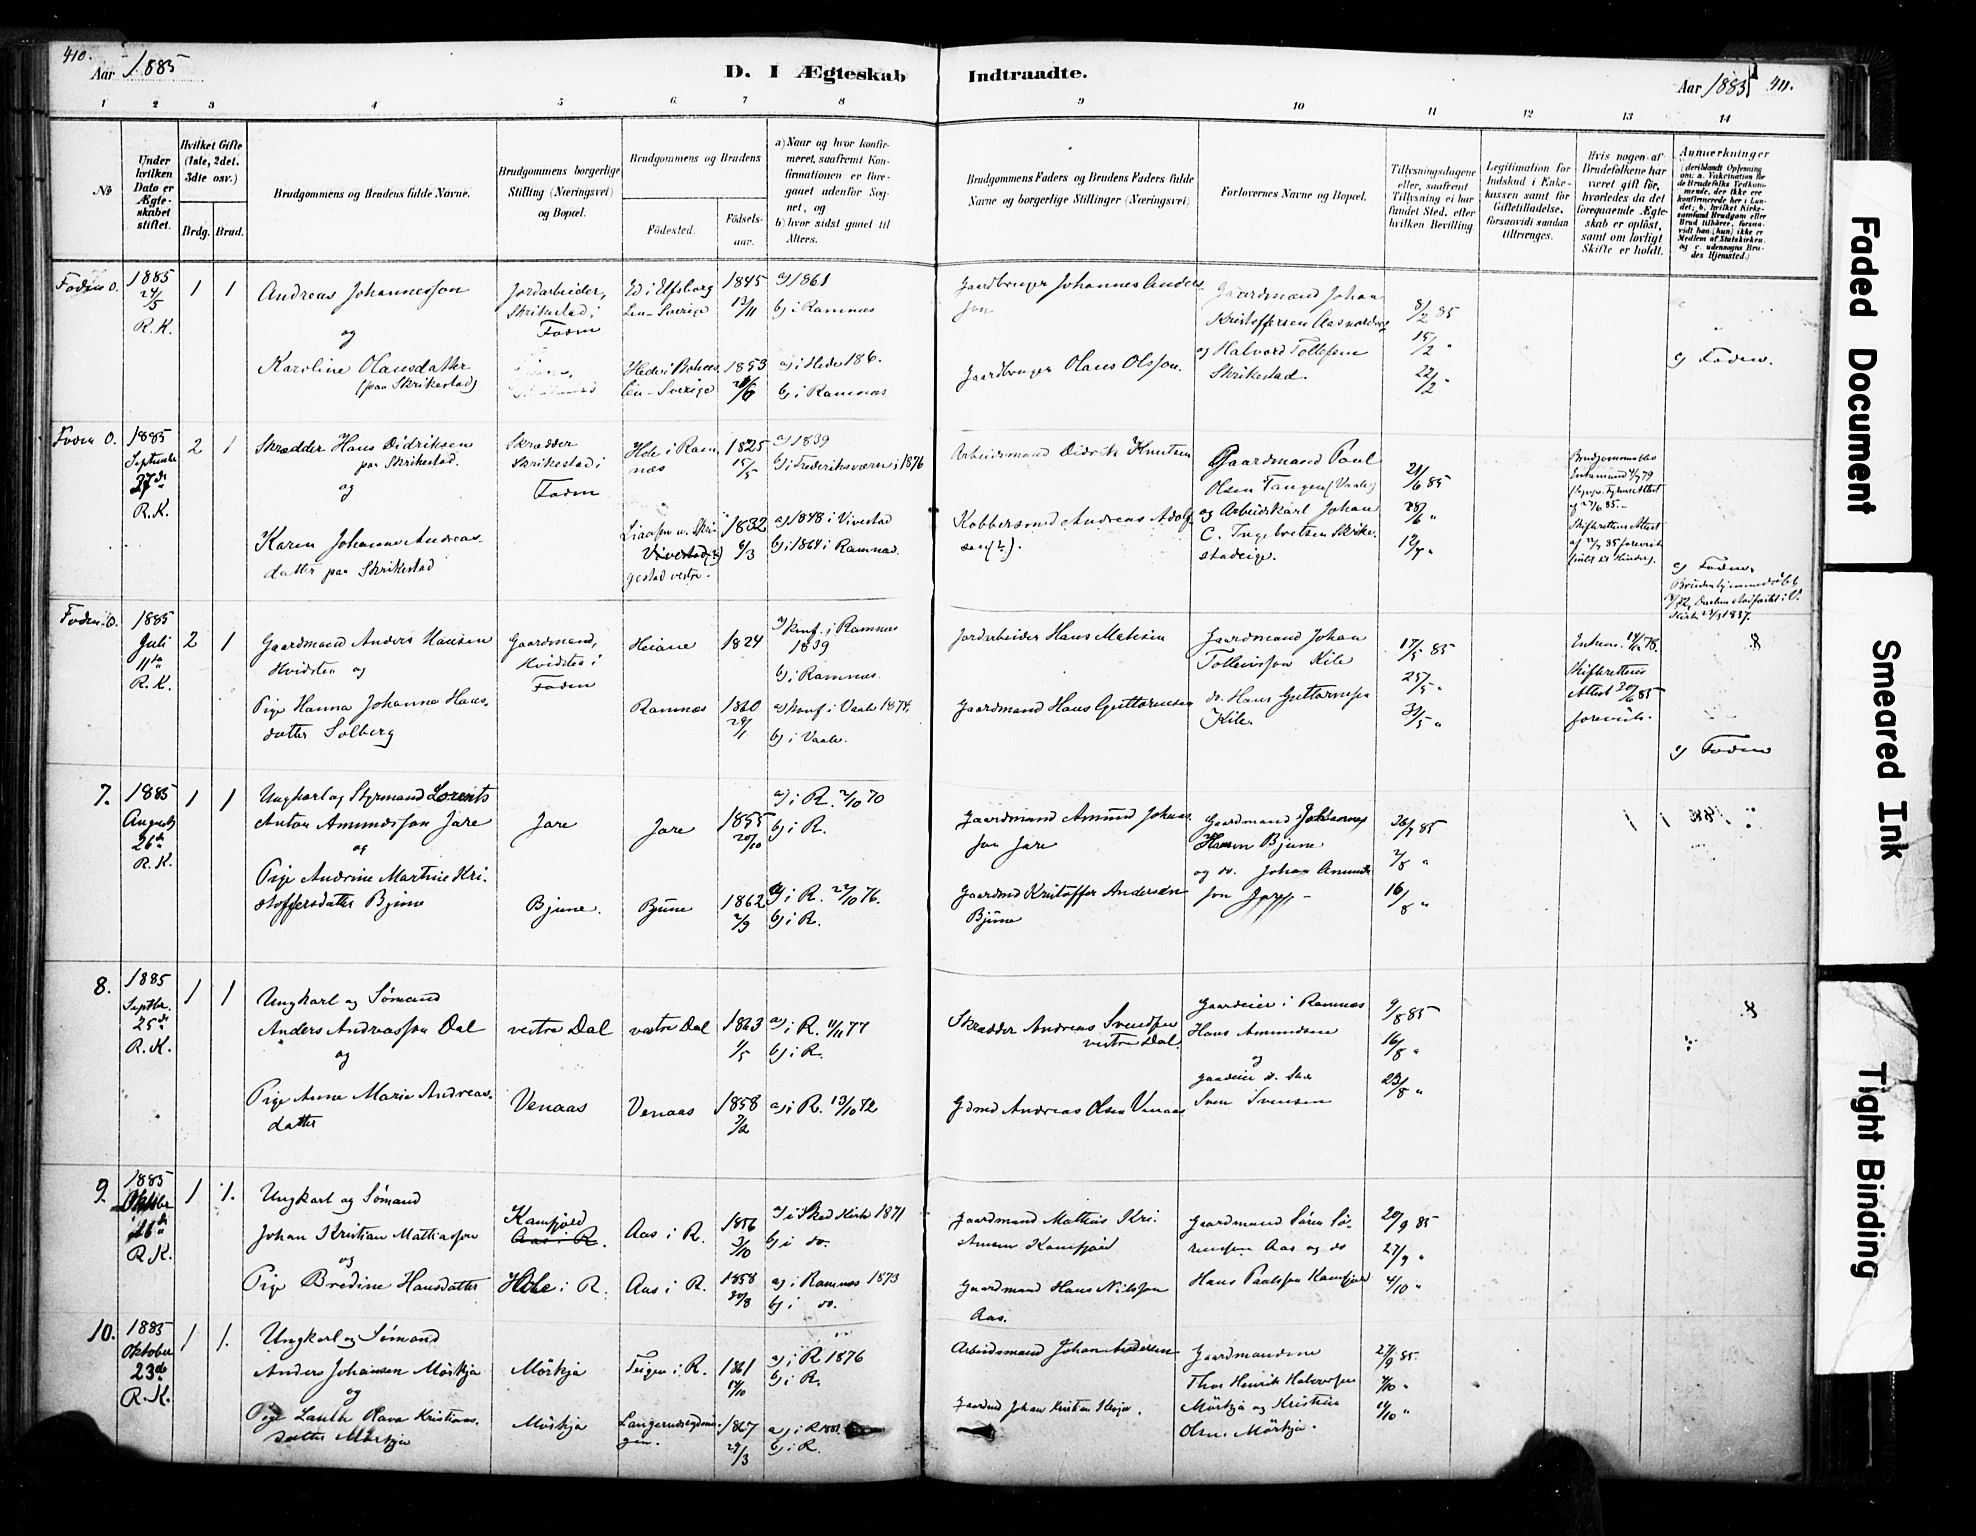 410.
Aar 1885
D. I Ægteskab
Indtraadte.
Aar 1885
411.
1 2 3 4 5 6 7 8 9 10 11 12 13 14
No
Under hvilken Dato er Ægteskabet stiftet.
Hvilket Gifte (1ste, 2det, 3die osv.)
Brdg. Brud.
Brudgommens og Brudens fulde Navne.
Brudgommens borgerlige Stilling (Næringsvei) og Bopæl.
Brudgommens og Brudens
Fødested.
Fødselsaar.
a) Naar og hvor konfirmeret, saafremt Konfirmationen er foregaaet udenfor Sognet, og
b) hvor sidst gaaet til Alters.
Brudgommens Faders og Brudens Faders fulde Navne og borgerlige Stillinger (Næringsvei)
Forlovernes Navne og Bopæl.
Tillysningsdagene eller, saafremt Tillysning ei har fundet Sted, efter hvilken Bevilling
Legitimation for Indskud i Enkekassen samt for Giftetilladelse, forsaavidt saadan tiltrænges.
Hvis nogen af Brudefolkene har været gift før, hvorledes da det foregaaende Ægteskab er opløst, samt om lovligt Skifte er holdt.
Anmerkninger
Foden O.
1885
24/5
R.K.
1 1
Andreas Johannesson
og
Karoline Olausdatter
(paa Skrikestad)
Jordarbeider,
Skrikestad i
Foden
Ed i Elfsborg
Len - Sverige
1845
13/11
a) 1861
b) i Ramnæs
Hede i Bohus
Len - Sverige
1853
a) i Hede 186.
b) i Ramnæs
Gaardbruger Johannes Anders
son
Gaardbruger Olaus Olsson.
Gaardmand Johan
Kristoffersen
og Halvord Tollefsen
Skrikestad.
8/2 85
15/2 "
22/2 "
c) Foden.
Foden O.
1885
Septembr
27de
R.K.
2 1
Skrædder Hans Didriksen
paa Skrikestad.
og
Karen Johanne Andreas-
datter paa Skrikestad
Skrædder
Skrikestad i
Foden
Hole i Ram
næs
1825
15/5
a) 1839
b) i Frederiksværn i 1876
Vivestad
gestad vestre.
1832
6/3
a) 1848 i Vivestad
b) i 1864 i Ramnæs.
Arbeidsmand Didrik Knutsen
Kobbersmed Andreas Adolf
sen (?).
Gaardmand Poul
Olsen Fangen (Vaale)
og Arbeidskarl Johan
C. Ingebretsen Skrike-
stadeige.
21/6 85
28/6 "
12/7 "
c) Foden.
Foden O.
1885
Juli
11te
R.K.
2 1
Gaardmand Anders Hansen
Hvidsten og
Pige Hanna Johanne Hans-
datter Solberg
Gaardmand,
Hvidsten i
Foden
Heiane
1824
a) konf. i Ramnæs
1839
b) i Ramnæs.
Ramnæs
1860
29/1
a) konf i Vaale 1874.
b) i Vaale.
Jordarbeider Hans Matisen
Gaardmand Hans Guttormsen
Gaardmand Johan
Tollevsson Kile
do. Hans Guttormsen
Kile.
17/5 85
25/5 "
31/5 "
Enkem.
Skifterettens
Attest 30/6 85
forevist.
c) Foden
7.
1885
August
26de
R.K.
1 1
Ungkarl og Styrmand Lorents
Anton Amundsson Jare
og
Pige Andrine Martine Kri-
stoffersdatter Bjune
Jare
Jare
1855
20/10
a) i R. 2/10 70
b) i R.
Bjune.
Bjune
1862
2/9
a) i R. 22/10 76.
b) i R.
Gaardmand Amund Johans
son Jare
Gaardmd Kristoffer Andersen
Bjune
Gaardmand Johannes
Hansen Bjune
og do. Johan Amund
son Jare -
26/7 85
2/8 "
16/8 "
8.
1885
Septbr.
25de
R.K.
1 1
Ungkarl og Sømand
Anders Andreasson Dal
og
Pige Anne Marie Andreas-
datter
vestre Dal
vestre Dal
1863
1/5
a) i R. 11/11 77
b) i R.
Venaas
Venaas
1858
2/2
a) i R. 13/10 72
Skrædder Andreas Svendsen
vestre Dal.
Gdmd Andreas Olsen Venaas
Gaardeier i Ramnæs
Hans Amundsen
og
gaardeier
Sven Svensen
9/8 85
16/8 "
23/8 "
9.
1885
Oktober
16de
R.K.
1 1.
Ungkarl og Sømand
Johan Kristian Mattiasson
og
Pige Bredine Hansdatter
Kamfjord
Aas i R.
Aas i R.
1856
3/10
a) i Sked Kirke 1871
b) i do.
Hole i R.
Aas i R.
1858
30/8
a) i Ramnæs 1873
b) i do.
Gaardmand Mathias Kri-
stensen Kamfjord
Gaardmand Hans Nilsson
Aas.
Gaardmand Søren Sø-
rensen Aas og do
Hans Paulsson Kamfjord
20/9 85
27/9 "
4/10 "
10.
1885
Oktober
23de
R.K.
1 1.
Ungkarl og Sømand
Anders Johansen Mørkja
og
Pige Kristians-
datter Mørkja
Mørkja
Teigen i R.
1861
14/10
a) i R 1876
b) i R.
Mørkja
1867
29/3
b) i R.
Arbeidsmand Johan Andersen
Gaardmd Johan Kristian
Gaardmændene
Thor Henrik Halvorsen
Mørkja og Kristian
Olsen Mørkja.
27/9 85.
4/10 "
11/10 "
Faded Document
Smeared Ink
Tight Binding